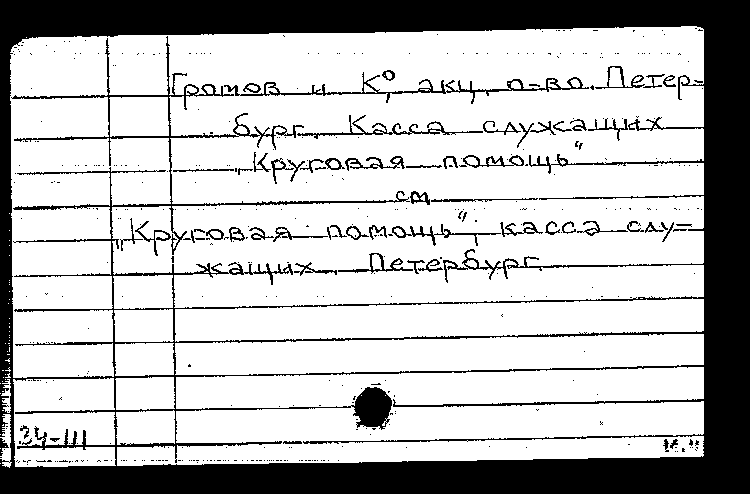 Громов и К⁰, акц. о-во. Петер-
бург. Касса служащих
„Круговая помощь“
см
„Круговая помощь“, касса слу-
жащих. Петербург.
34-III